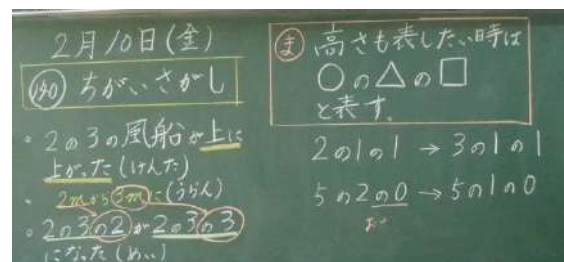 2月10日(金)
ちがいさがし
。2の3の風船が上に
上がった(けんた)
。2mから3mに(うらん)
。2の3の2が2の3の3
になった(めい)
ま 高さも表したい時は
○の△の□
と表す。
2の1の1 → 3の1の1
5の2の0 → 5の1の0